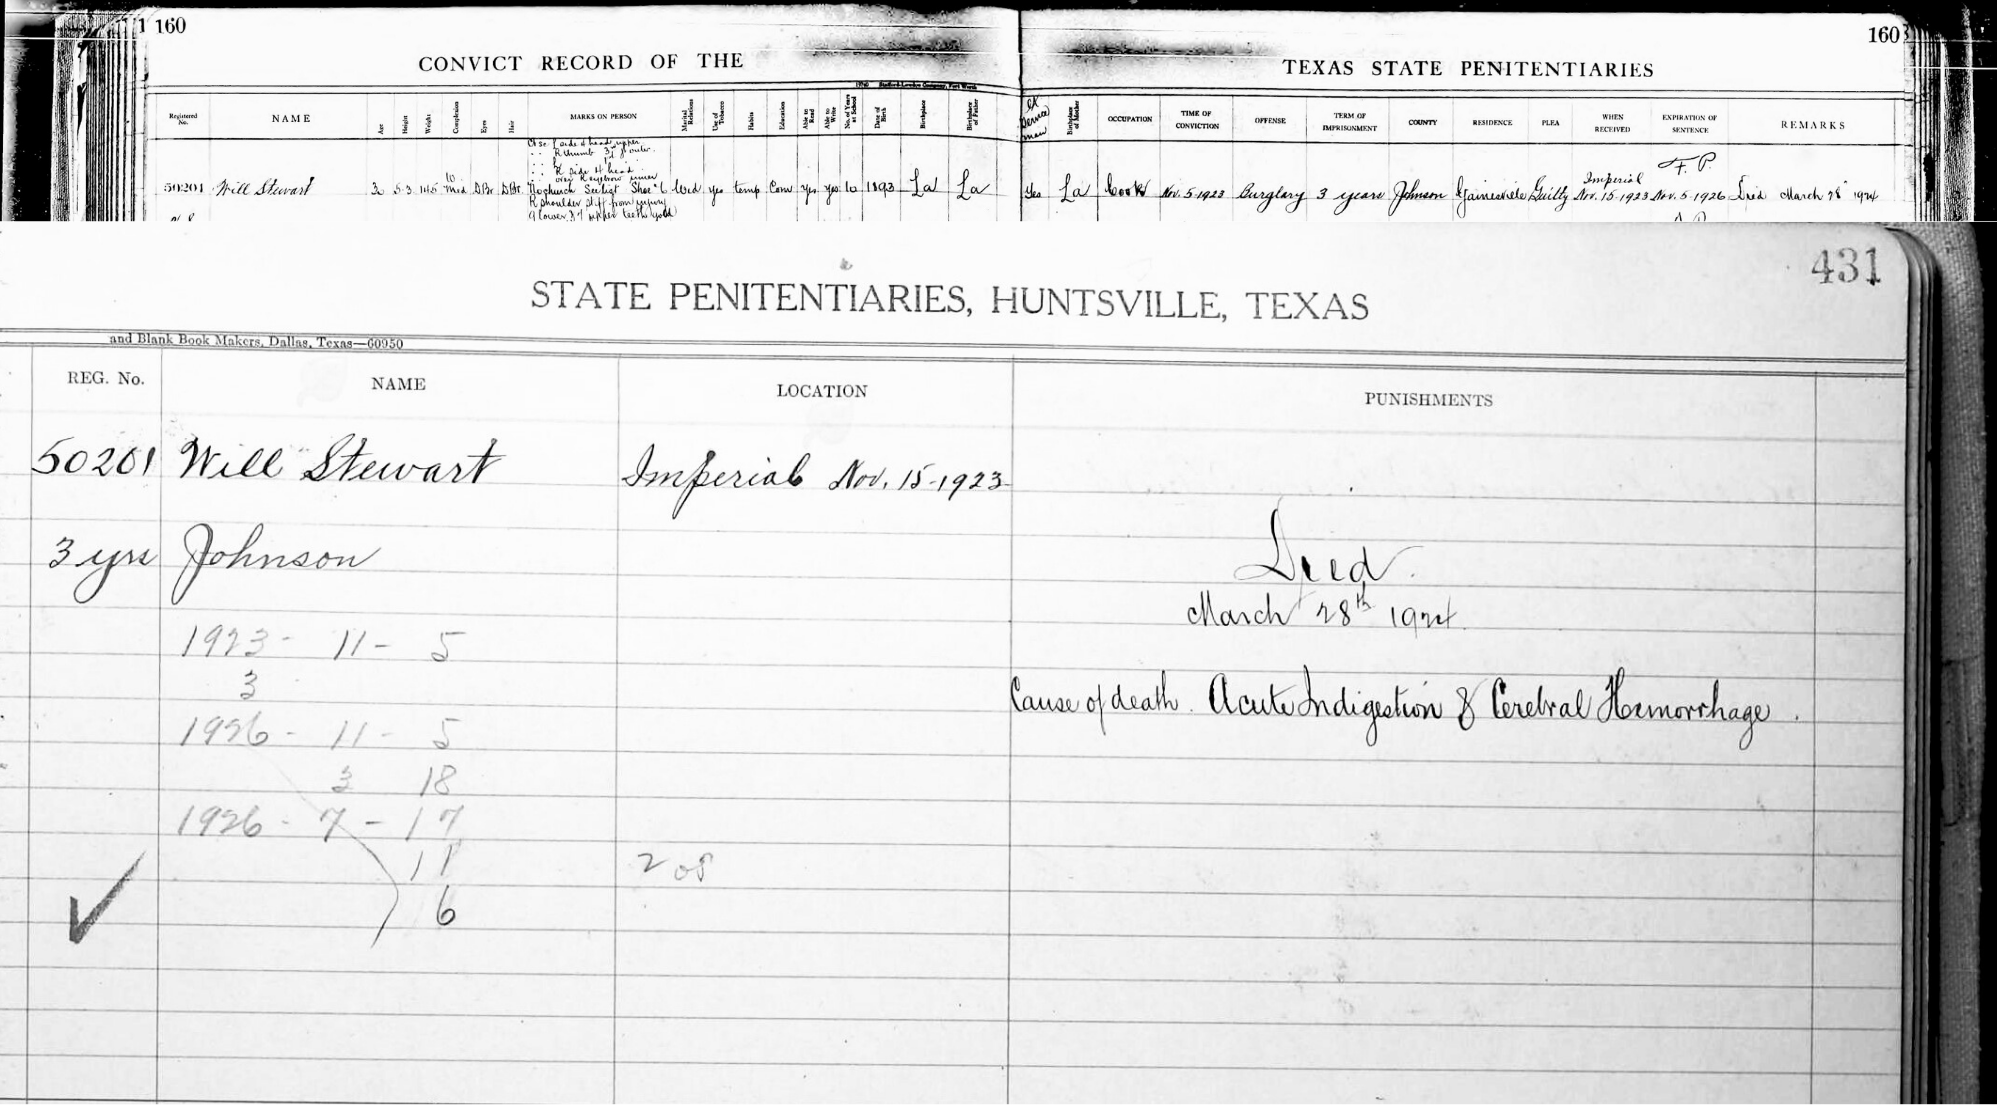 160
160
CONVICT RECORD OF THE
TEXAS STATE PENITENTIARIES
Registered No. NAME Age Height Weight Complexion Eyes Hair MARKS ON PERSON Marital Relations Use of Tobacco Habits Education Able to Read Able to Write No. of Years at School Date of Birth Birthplace Birthplace of Father Ex Service man Birthplace of Mother OCCUPATION TIME OF CONVICTION OFFENSE TERM OF IMPRISONMENT COUNTY RESIDENCE PLEA WHEN RECEIVED EXPIRATION OF SENTENCE REMARKS
side of head upper
R thumb
R side H head
over R eyebrow inner
F. P.
Imperial
50201 Will Stewart 5-3 145 Med D Br. D Br. No church Shoe 6 Wid yes temp Com Yes Yes 10 1893 La La Yes La Cook Nov. 5-1923 Burglary 3 years Johnson Gainesville Guilty Nov. 15-1923 Nov. 5-1926 Died March 28" 1924
R shoulder stiff from injury
9 lower & 7 upper teeth gold
431
STATE PENITENTIARIES, HUNTSVILLE, TEXAS
and Blank Book Makers, Dallas, Texas—60950
REG. No. NAME LOCATION PUNISHMENTS
50201 Will Stewart Imperial Nov. 15-1923
3 yrs Johnson
Died.
March 28th 1924.
1923 - 11 - 5
3
Cause of death. Acute Indigestion & Cerebral Hemorrhage.
1926 - 11 - 5
3 18
1926 - 7 - 17
11
6